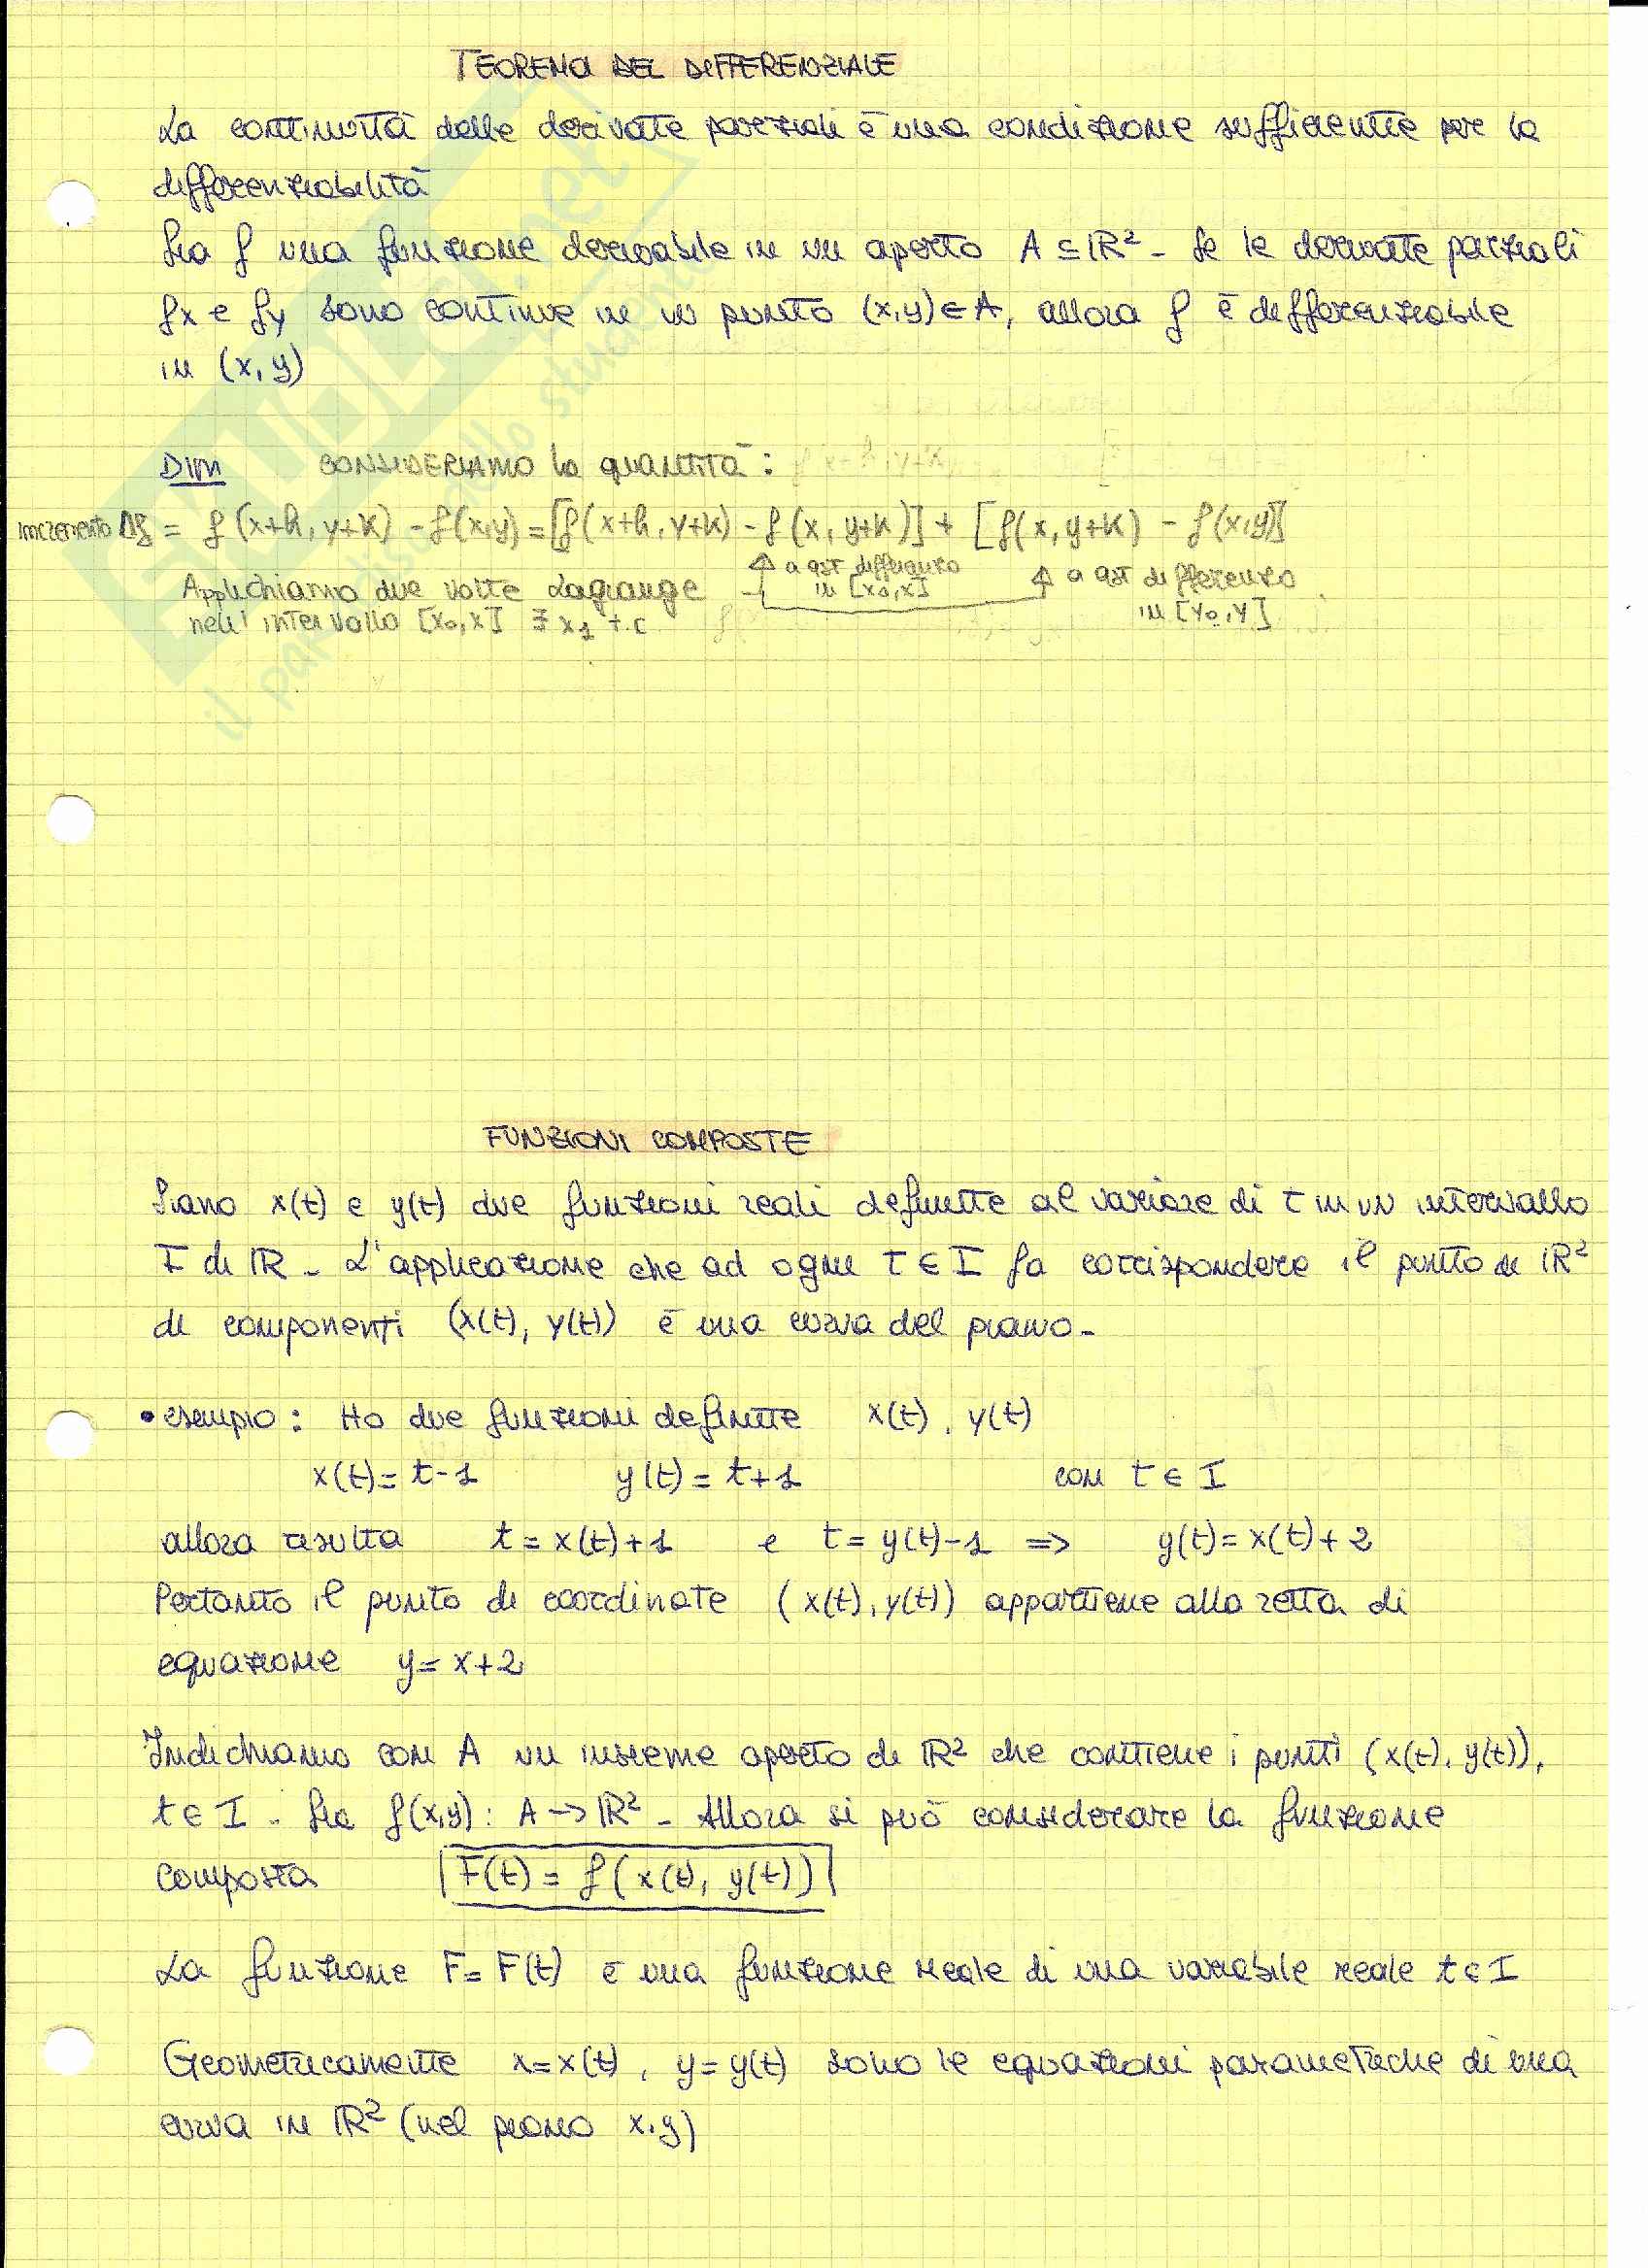 TEOREMA DEL DIFFERENZIALE
La continuità delle derivate parziali è una condizione sufficiente per la
differenziabilità
Sia f una funzione derivabile in un aperto A ⊆ IR² - Se le derivate parziali
fx e fy sono continue in un punto (x,y) ∈ A, allora f è differenziabile
in (x, y)
Dim CONSIDERIAMO la quantità:
incremento Δf = f(x+h, y+k) - f(x,y) = [f(x+h, y+k) - f(x, y+k)] + [f(x, y+k) - f(x,y)]
Applichiamo due volte Lagrange a qst differenza a qst differenza
nell'intervallo [x₀,x] ∃ x₁ t.c in [x₀,x] in [y₀,y]
FUNZIONI COMPOSTE
Siano x(t) e y(t) due funzioni reali definite al variare di t in un intervallo
I di IR - L'applicazione che ad ogni t ∈ I fa corrispondere il punto di IR²
di componenti (x(t), y(t)) è una curva del piano-
• esempio: Ho due funzioni definite x(t), y(t)
x(t) = t-1 y(t) = t+1 con t ∈ I
allora risulta t = x(t)+1 e t = y(t)-1 => y(t) = x(t)+2
Pertanto il punto di coordinate (x(t), y(t)) appartiene alla retta di
equazione y = x+2
Indichiamo con A un insieme aperto di IR² che contiene i punti (x(t), y(t)),
t ∈ I - Sia f(x,y): A → IR² - Allora si può considerare la funzione
composta F(t) = f(x(t), y(t))
La funzione F = F(t) è una funzione reale di una variabile reale t ∈ I
Geometricamente x = x(t), y = y(t) sono le equazioni parametriche di una
curva in IR² (nel piano x,y)